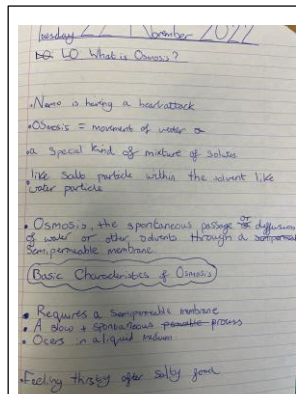 Tuesday 22 November 2022
LO What is Osmosis?
• Nemo is having a heart attack
• Osmosis = movement of water or
• a special kind of mixture of solutes
• like salts particle within the solvent like
water particle
• Osmosis, the spontaneous passage or diffusion
of water or other solvents through a semipermeable
semipermeable membrane.
Basic Characteristics of Osmosis
• Requires a semipermeable membrane
• A slow + spontaneous process
• Occers in a liquid medium
• Feeling thirsty after salty food